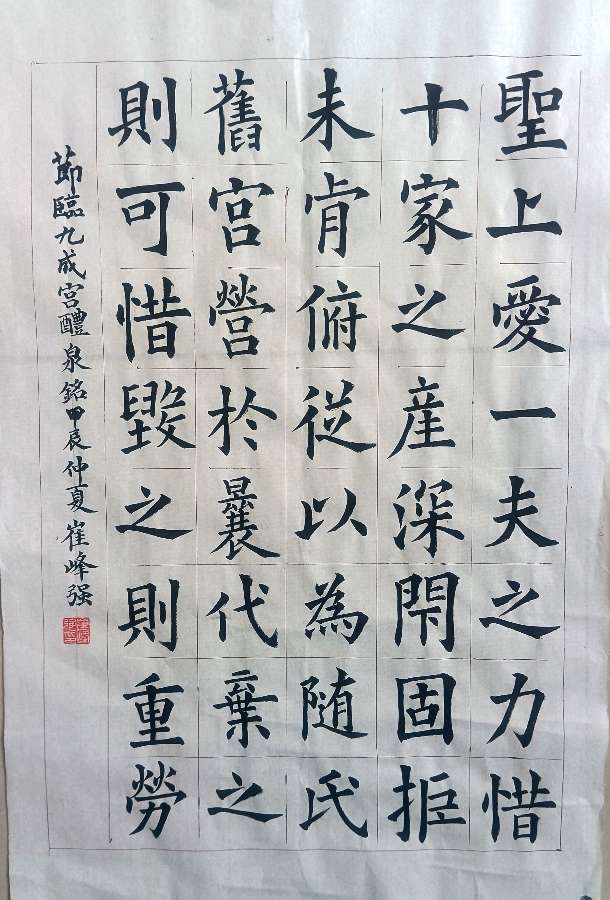 聖上愛一夫之力惜
十家之産深閇固拒
未肯俯從以為随氏
舊宫營於曩代棄之
則可惜毀之則重勞
莭臨九成宫醴泉銘甲辰仲夏崔峰强